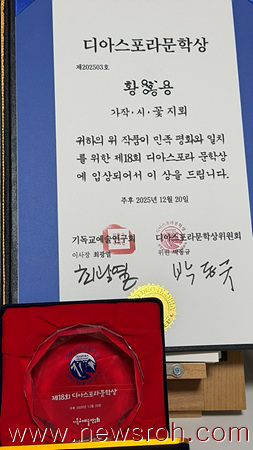 디아스포라문학상
제202503호
황 용
가작·시·꽃 지뢰
귀하의 위 작품이 민족 평화와 일치
를 위한 제18회 디아스포라 문학상
에 입상되어서 이 상을 드립니다.
주후 2025년 12월 20일
기독교예술연구회 디아스포라문학상위원회
이사장
제18회 디아스포라문학상
주후 2025년 12월 20일
www.newsroh.com